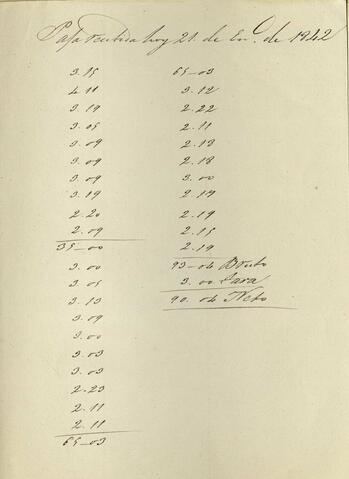 Papa recibida hoy 21. de En.º de 1842
3.15
4.11
3.19
3.05
3.09
3.09
3.09
3.19
2.20
2.09
35-00
3.00
3.05
3.13
3.09
3.00
3.03
3.03
2.23
2.11
2.11
65-03
65-03
3.12
2.22
2.11
2.18
2.18
3.00
2.17
2.19
2.15
2.19
93-04 Bruto
3.00 Tara
90.04 Neto